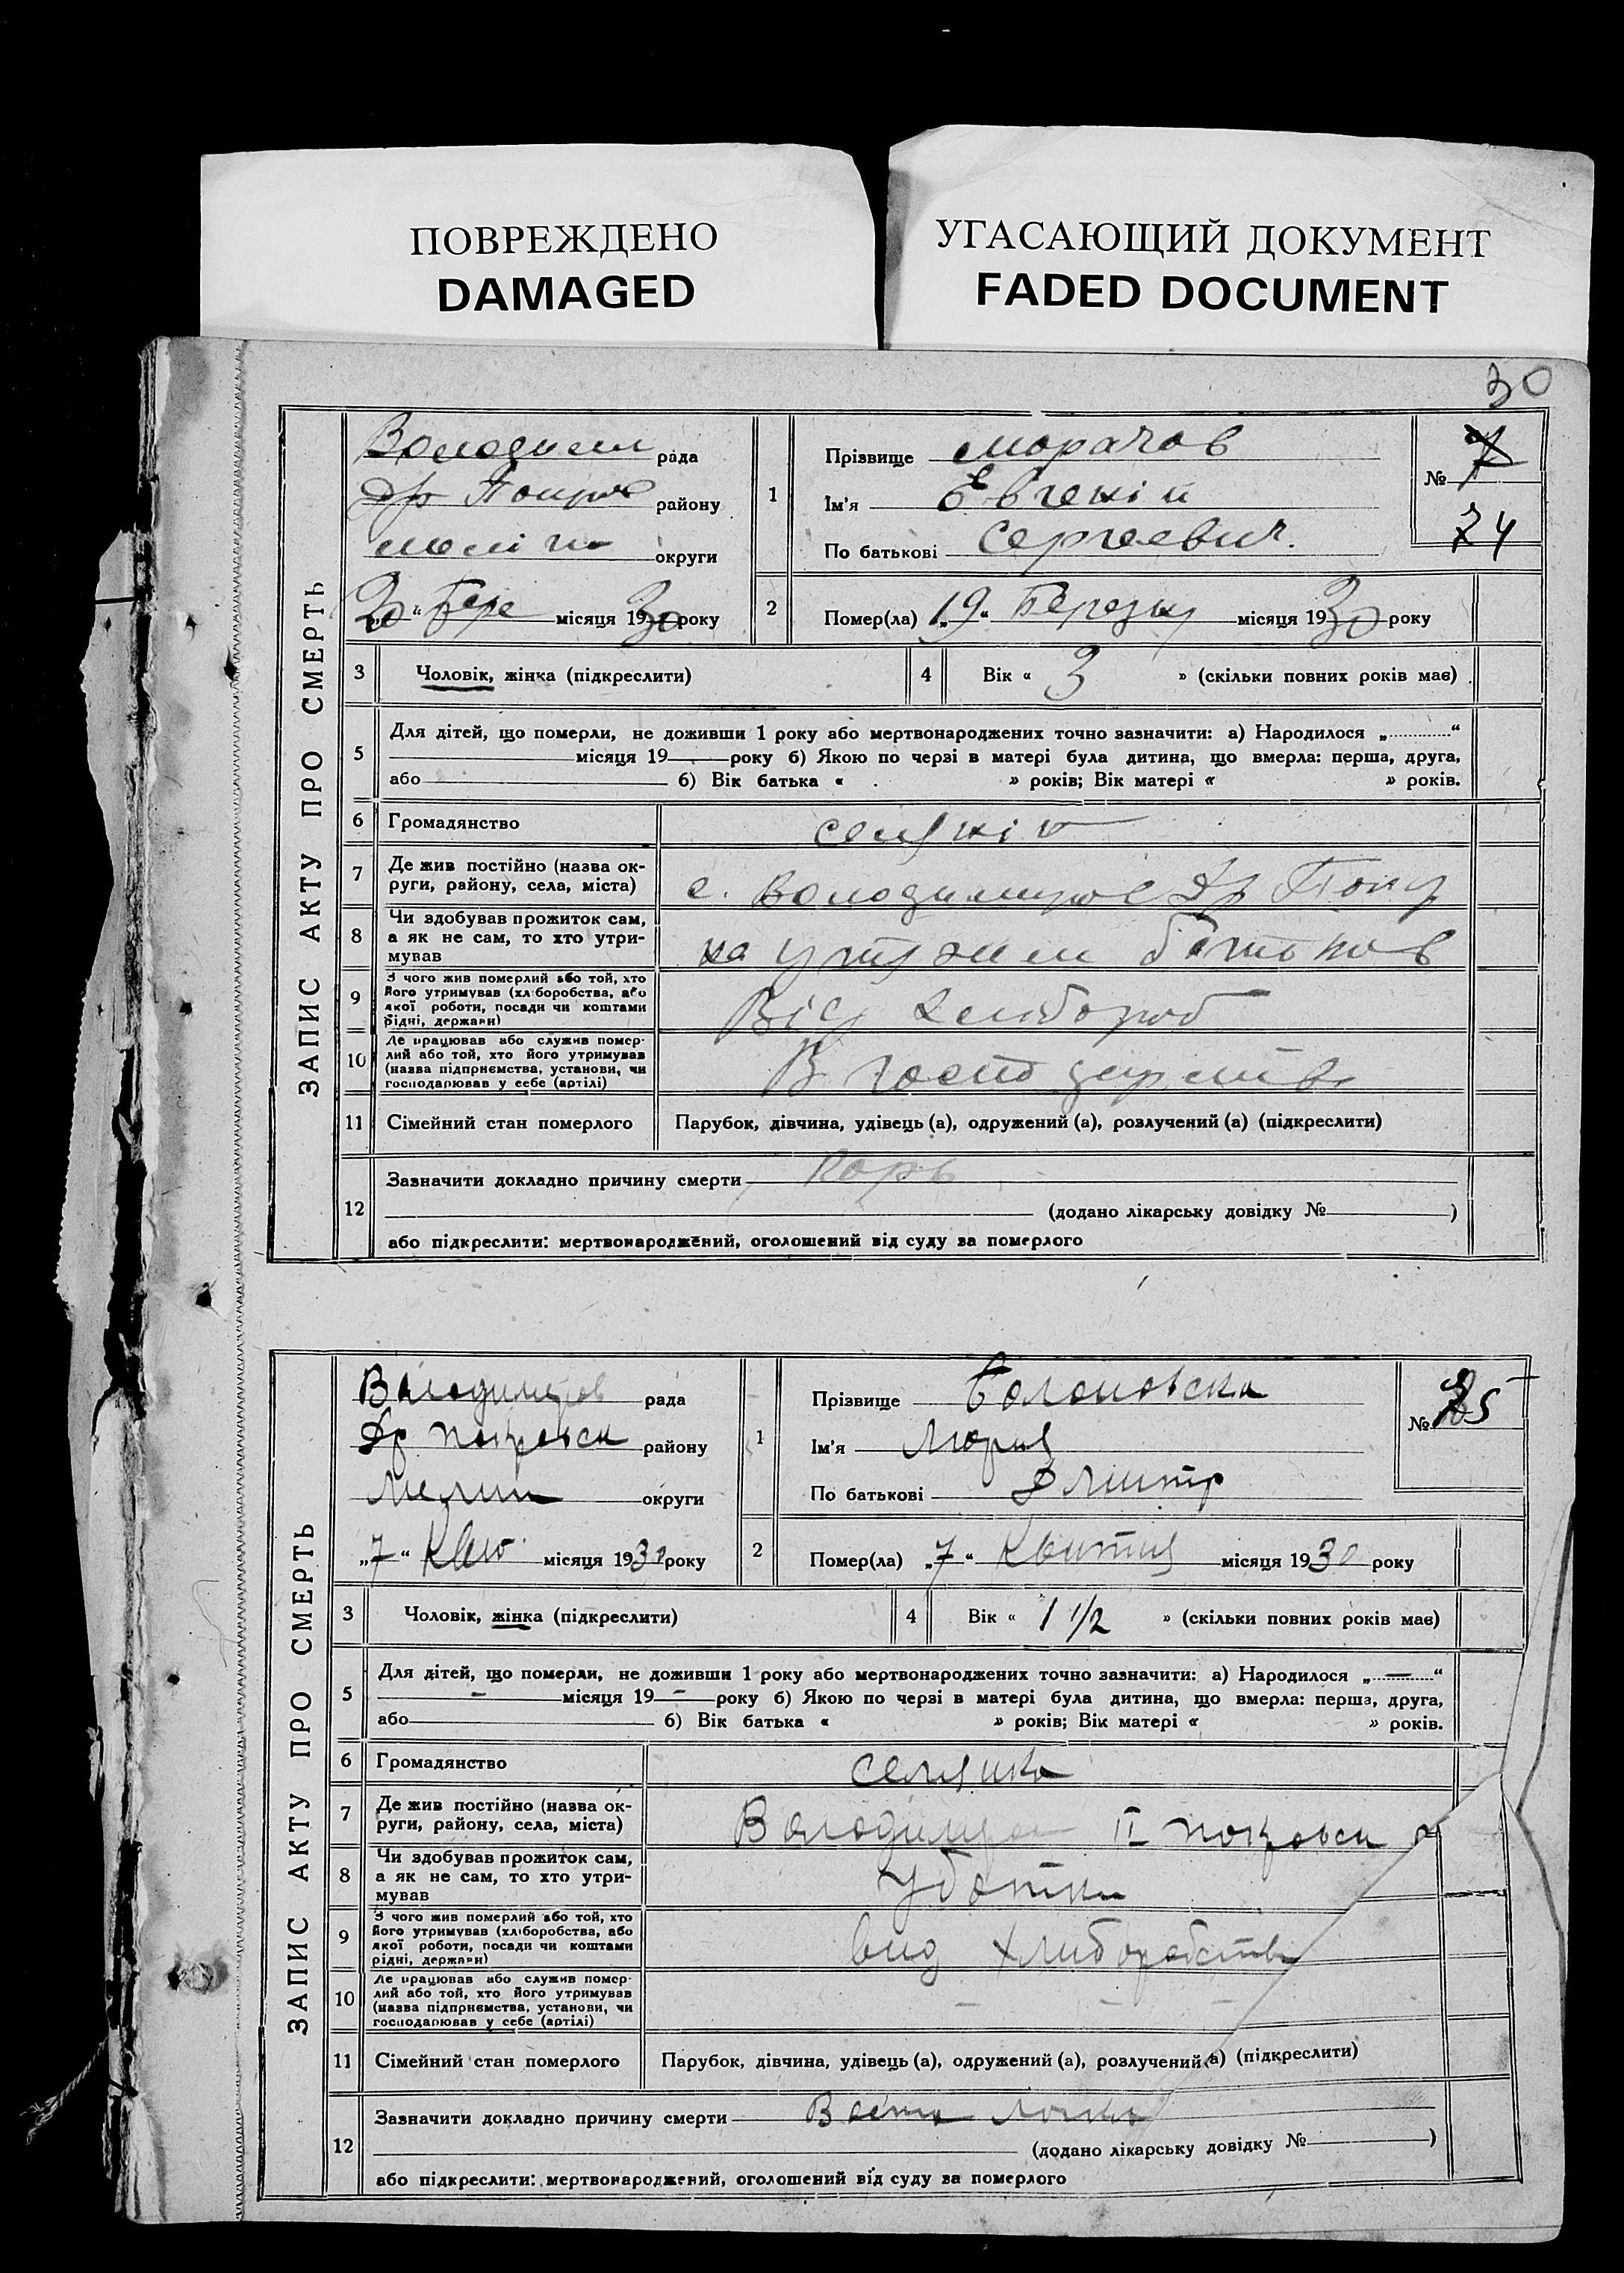 ПОВРЕЖДЕНО
DAMAGED
УГАСАЮЩИЙ ДОКУМЕНТ
FADED DOCUMENT
30
ЗАПИС АКТУ ПРО СМЕРТЬ
рада
району
округи
„20“ Бере місяця 1930 року
1
Прізвище Морачов
Ім'я Евгеній
По батькові Сергеевич.
№ 7
74
2
Помер(ла) „19“ Березня місяця 1930 року
3 Чоловік, жінка (підкреслити)
4 Вік « 3 » (скільки повних років має)
5
Для дітей, що померли, не доживши 1 року або мертвонароджених точно зазначити: а) Народилося „............“
місяця 19 року б) Якою по черзі в матері була дитина, що вмерла: перша, друга,
або б) Вік батька « » років; Вік матері « » років.
6 Громадянство
7 Де жив постійно (назва ок-
руги, району, села, міста)
с.
8 Чи здобував прожиток сам,
а як не сам, то хто утри-
мував
на
9 З чого жив померлий або той, хто
його утримував (хліборобства, або
якої роботи, посади чи коштами
рідні, держави)
Від
10 Де працював або служив помер-
лий або той, хто його утримував
(назва підприємства, установи, чи
господарював у себе (артілі)
В
11 Сімейний стан померлого Парубок, дівчина, удівець (а), одружений (а), розлучений (а) (підкреслити)
12
Зазначити докладно причину смерти Корь
(додано лікарську довідку № )
або підкреслити: мертвонароджений, оголошений від суду за померлого
ЗАПИС АКТУ ПРО СМЕРТЬ
Володимиров рада
Др Покровськ району
Мелит округи
„7“ Квіт. місяця 1930 року
1
Прізвище
Ім'я Мория
По батькові Дмитр
№ 25
2
Помер(ла) „7“ Квитня місяця 1930 року
3 Чоловік, жінка (підкреслити)
4 Вік « 1 1/2 » (скільки повних років має)
5
Для дітей, що померли, не доживши 1 року або мертвонароджених точно зазначити: а) Народилося „—“
- місяця 19 - року б) Якою по черзі в матері була дитина, що вмерла: перша, друга,
або б) Вік батька « » років; Вік матері « » років.
6 Громадянство селянка
7 Де жив постійно (назва ок-
руги, району, села, міста)
II
8 Чи здобував прожиток сам,
а як не сам, то хто утри-
мував
9 З чого жив померлий або той, хто
його утримував (хліборобства, або
якої роботи, посади чи коштами
рідні, держави)
вид хлиборобства
10 Де працював або служив помер-
лий або той, хто його утримував
(назва підприємства, установи, чи
господарював у себе (артілі)
11 Сімейний стан померлого Парубок, дівчина, удівець (а), одружений (а), розлучений (а) (підкреслити)
12
Зазначити докладно причину смерти
(додано лікарську довідку № )
або підкреслити: мертвонароджений, оголошений від суду за померлого